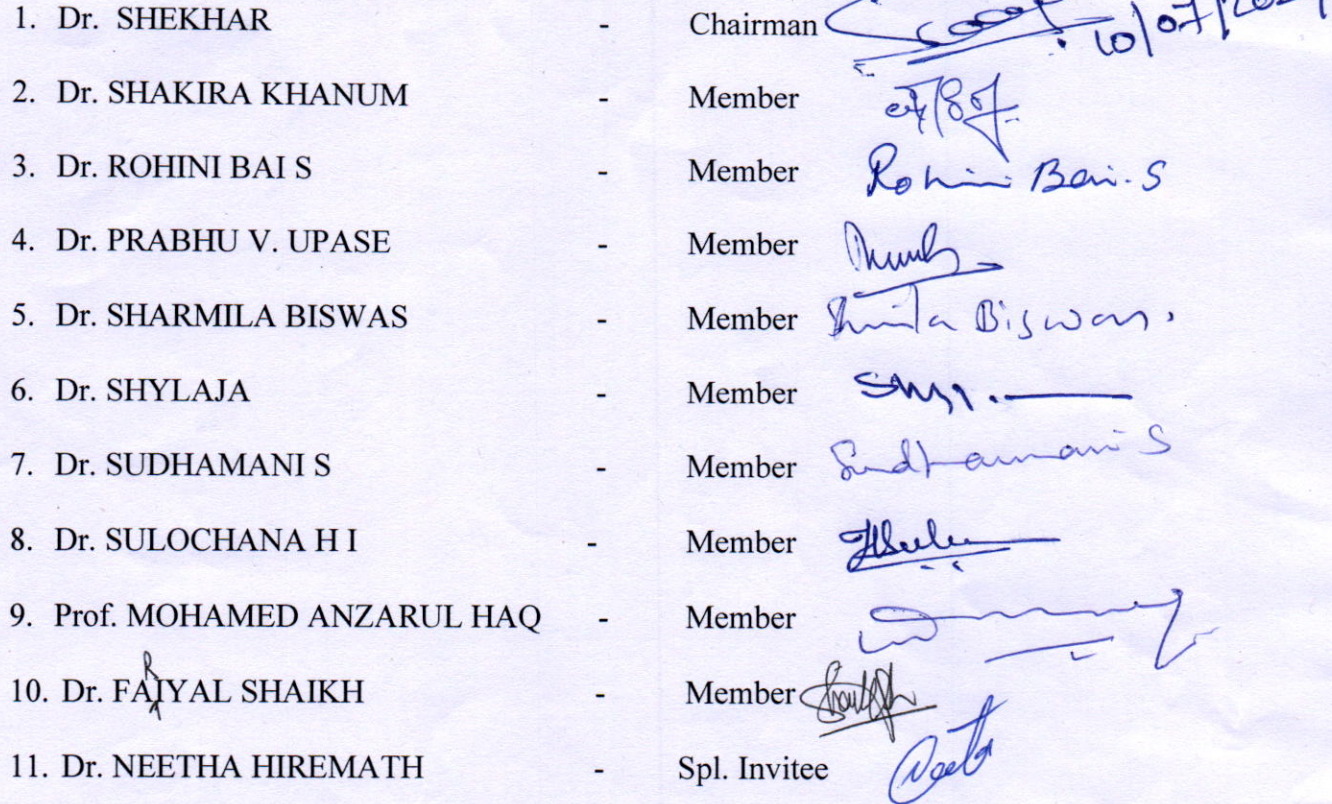 1. Dr. SHEKHAR - Chairman
2. Dr. SHAKIRA KHANUM - Member
3. Dr. ROHINI BAI S - Member Rohini Bai. S
4. Dr. PRABHU V. UPASE - Member
5. Dr. SHARMILA BISWAS - Member Biswas.
6. Dr. SHYLAJA - Member
7. Dr. SUDHAMANI S - Member Sudhamani S
8. Dr. SULOCHANA H I - Member
9. Prof. MOHAMED ANZARUL HAQ - Member
10. Dr. FARIYAL SHAIKH - Member
11. Dr. NEETHA HIREMATH - Spl. Invitee Neeta